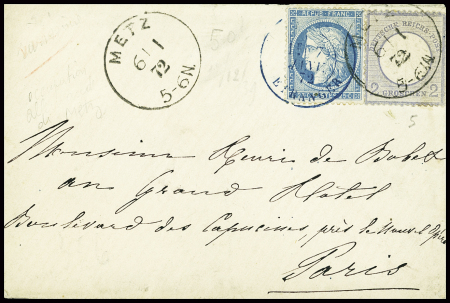 METZ
6 1 1
72
5-6N.
REPUB. FRANC.
2
GROSCHEN
2
5
Monsieur Henri de Bobet
au Grand Hôtel
Boulevard des Capucines, près le Nouvel Opéra
Paris